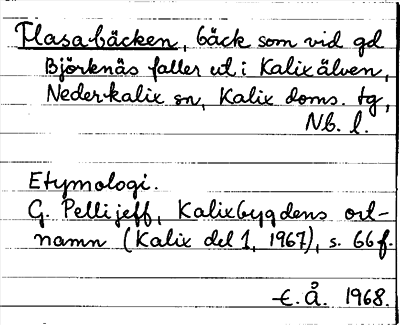 Flasabäcken, bäck som vid gd
Björknäs faller ut i Kalixälven,
Nederkalix sn, Kalix doms. tg,
Nb. l.
Etymologi.
G. Pellijeff, Kalixbygdens ort-
namn (Kalix del 1, 1967), s. 66f.
E.Å. 1968.